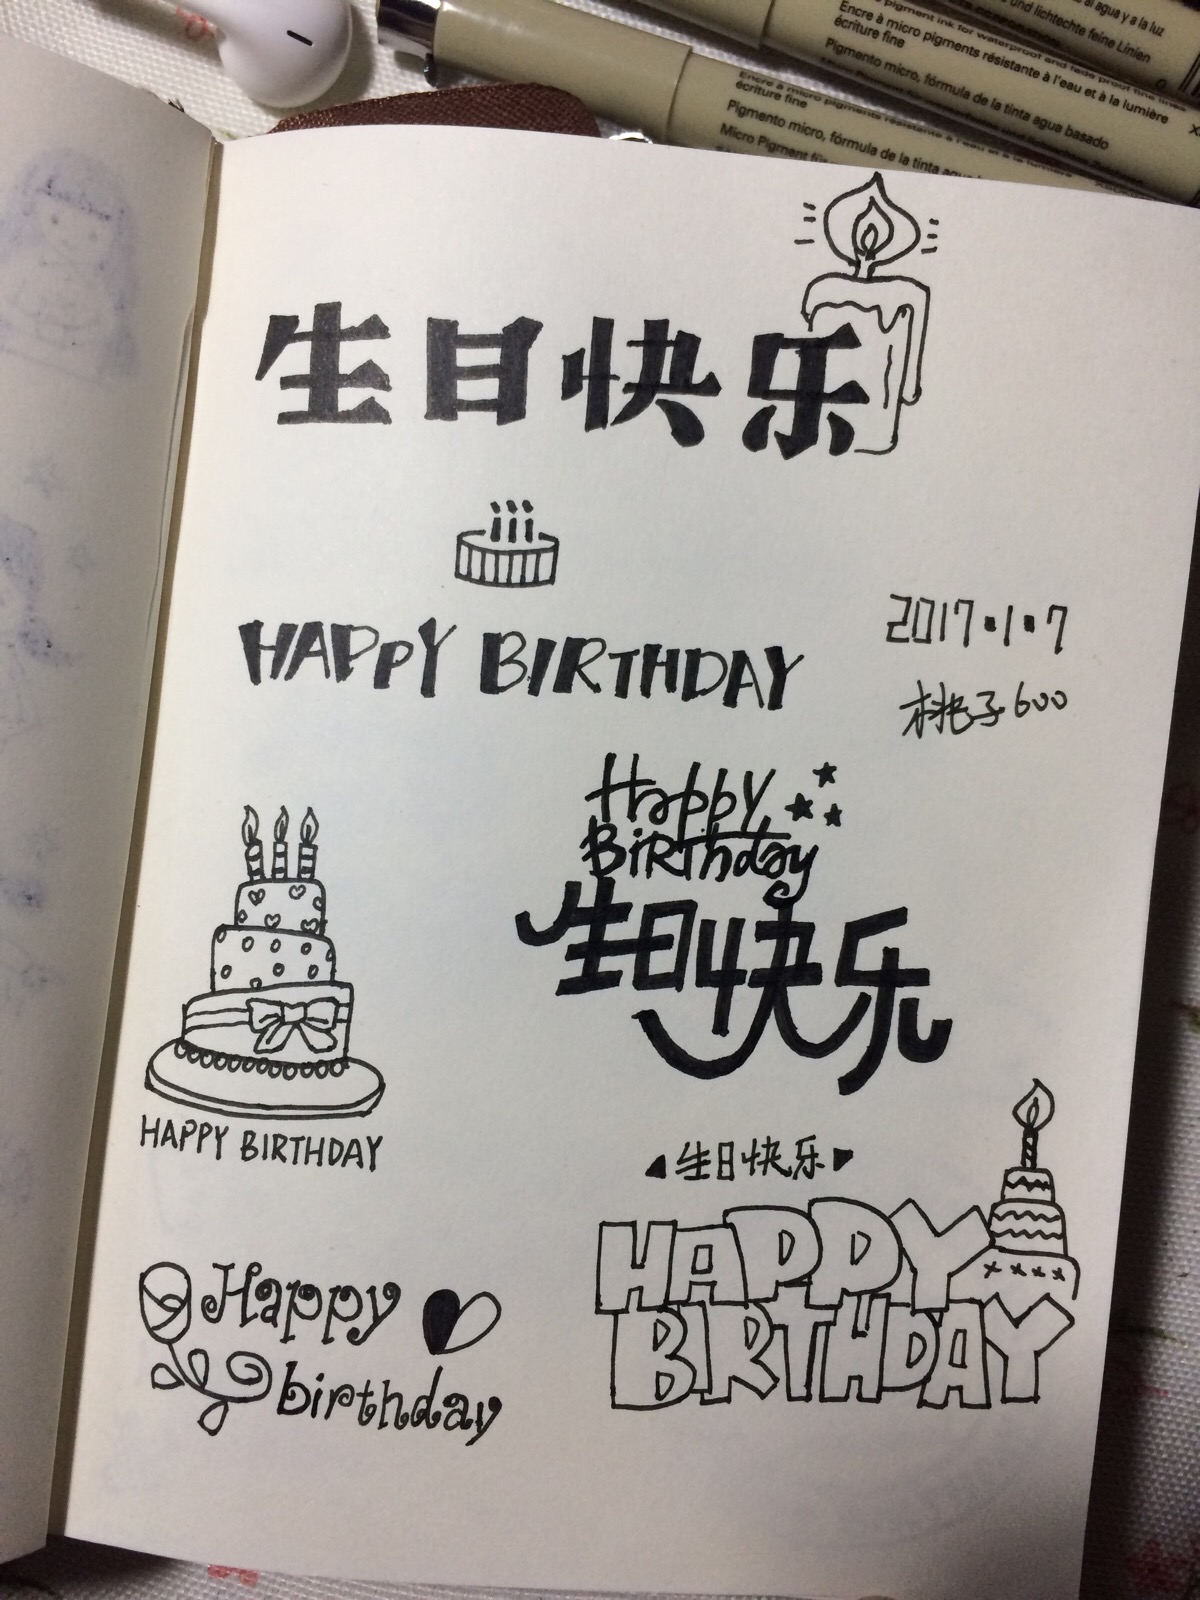 al agua y a la luz
und lichtechte feine Linien
pigment ink for waterproof and fade proof fine lines
Encre à micro pigments résistante à l'eau et à la lumière
écriture fine
Pigmento micro, fórmula de la tinta agua basado
Encre à micro pigments résistante à l'eau et à la lumière
écriture fine
Pigmento micro, fórmula de la tinta agua
Micro Pigment
生日快乐
HAPPY BIRTHDAY
2017·1·7
桃子600
Happy
Birthday
生日快乐
HAPPY BIRTHDAY
生日快乐
HAPPY
BIRTHDAY
Happy
birthday